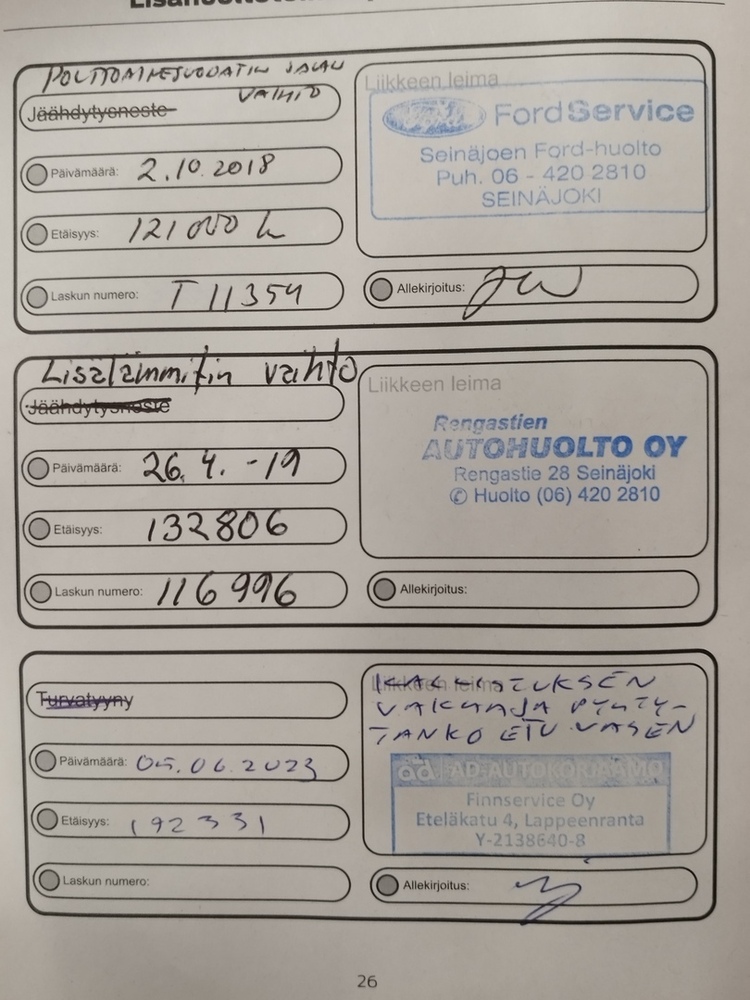 POLTTOAINESUODATIN JALAN
VAIHTO
Jäähdytysneste
Päivämäärä: 2.10.2018
Etäisyys: 121000 k
Laskun numero: T 11354
Liikkeen leima
Ford Ford Service
Seinäjoen Ford-huolto
Puh. 06 - 420 2810
SEINÄJOKI
Allekirjoitus:
Lisälämmitin vaihto
Jäähdytysneste
Päivämäärä: 26.4.-19
Etäisyys: 132806
Laskun numero: 116996
Liikkeen leima
Rengastien
AUTOHUOLTO OY
Rengastie 28 Seinäjoki
✆ Huolto (06) 420 2810
Allekirjoitus:
Turvatyyny
Päivämäärä: 05.06.2023
Etäisyys: 192331
Laskun numero:
Liikkeen leima
KALLISTUKSEN
VAKAAJA PYSTY-
TANKO ETU VASEN
ad AD-AUTOKORJAAMO
Finnservice Oy
Eteläkatu 4, Lappeenranta
Y-2138640-8
Allekirjoitus:
26